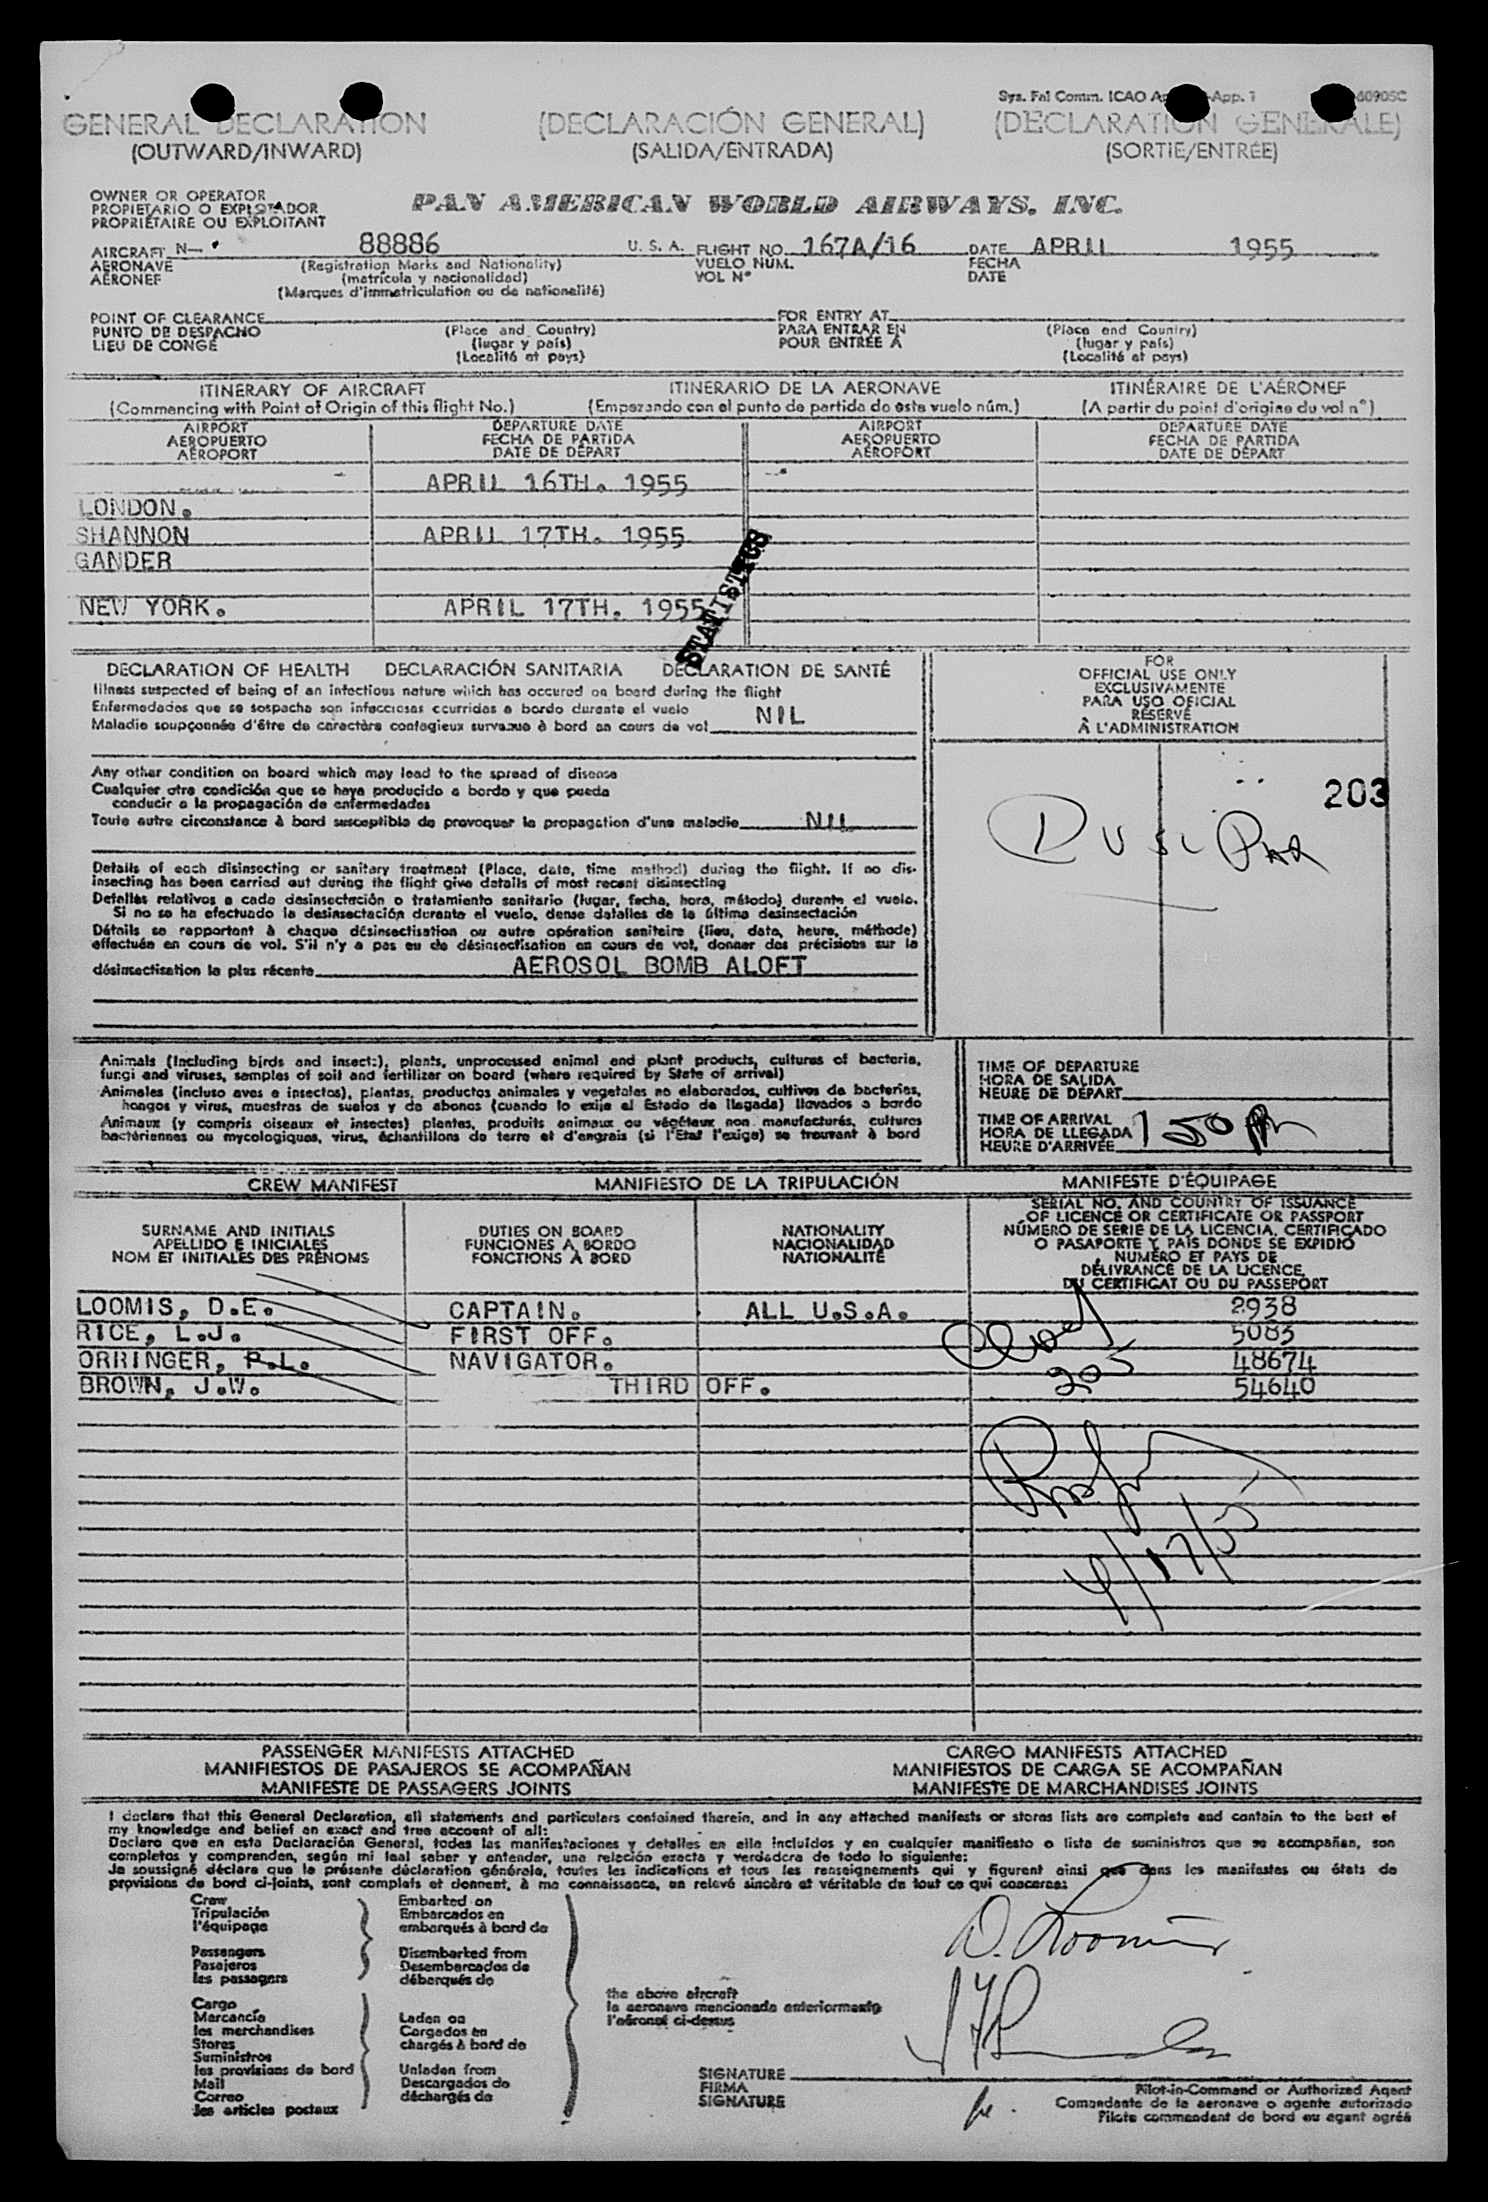 Sys. Fal Comm. ICAO App. 1 60905C
GENERAL DECLARATION (DECLARACIÓN GENERAL) (DECLARATION GENERALE)
(OUTWARD/INWARD) (SALIDA/ENTRADA) (SORTIE/ENTRÉE)
OWNER OR OPERATOR
PROPIETARIO O EXPLOTADOR PAN AMERICAN WORLD AIRWAYS, INC.
PROPRIÉTAIRE OU EXPLOITANT
AIRCRAFT N— 88886 U. S. A. FLIGHT NO. 167A/16 DATE APRIL 1955
AERONAVE (Registration Marks and Nationality) VUELO NÚM. FECHA
AÉRONEF (matrícula y nacionalidad) VOL N° DATE
(Marques d'immatriculation ou de nationalité)
POINT OF CLEARANCE FOR ENTRY AT
PUNTO DE DESPACHO (Place and Country) PARA ENTRAR EN (Place and Country)
LIEU DE CONGÉ (lugar y país) POUR ENTRÉE A (lugar y país)
(Localité et pays) (Localité et pays)
ITINERARY OF AIRCRAFT ITINERARIO DE LA AERONAVE ITINÉRAIRE DE L'AÉRONEF
(Commencing with Point of Origin of this flight No.) (Empezando con el punto de partida de este vuelo núm.) (A partir du point d'origine du vol n°)
AIRPORT DEPARTURE DATE AIRPORT DEPARTURE DATE
AEROPUERTO FECHA DE PARTIDA AEROPUERTO FECHA DE PARTIDA
AÉROPORT DATE DE DÉPART AÉROPORT DATE DE DÉPART
APRIL 16TH. 1955
LONDON.
SHANNON APRIL 17TH. 1955
GANDER
NEW YORK. APRIL 17TH. 1955
STATISTICS
DECLARATION OF HEALTH DECLARACIÓN SANITARIA DÉCLARATION DE SANTÉ
Illness suspected of being of an infectious nature which has occured on board during the flight
Enfermedades que se sospecha son infecciosas ocurridas a bordo durante el vuelo
Maladie soupçonnée d'être de caractère contagieux survenue à bord en cours de vol NIL
Any other condition on board which may lead to the spread of disease
Cualquier otra condición que se haya producido a bordo y que pueda
conducir a la propagación de enfermedades
Toute autre circonstance à bord susceptible de provoquer la propagation d'une maladie NIL
Details of each disinsecting or sanitary treatment (Place, date, time method) during the flight. If no dis-
insecting has been carried out during the flight give details of most recent disinsecting
Detalles relativos a cada desinsectación o tratamiento sanitario (lugar, fecha, hora, método) durante el vuelo.
Si no se ha efectuado la desinsectación durante el vuelo, dense detalles de la última desinsectación
Détails se rapportant à chaque désinsectisation ou autre opération sanitaire (lieu, date, heure, méthode)
effectuée en cours de vol. S'il n'y a pas eu de désinsectisation en cours de vol, donner des précisions sur la
désinsectisation la plus récente AEROSOL BOMB ALOFT
FOR
OFFICIAL USE ONLY
EXCLUSIVAMENTE
PARA USO OFICIAL
RÉSERVÉ
À L'ADMINISTRATION
203
Animals (Including birds and insects), plants, unprocessed animal and plant products, cultures of bacteria,
fungi and viruses, samples of soil and fertilizer on board (where required by State of arrival)
Animales (incluso aves e insectos), plantas, productos animales y vegetales no elaborados, cultivos de bacterias,
hongos y virus, muestras de suelos y de abonos (cuando lo exija el Estado de llegada) llevados a bordo
Animaux (y compris oiseaux et insectes) plantes, produits animaux ou végétaux non manufacturés, cultures
bactériennes ou mycologiques, virus, échantillons de terre et d'engrais (si l'Etat l'exige) se trouvant à bord
TIME OF DEPARTURE
HORA DE SALIDA
HEURE DE DÉPART
TIME OF ARRIVAL
HORA DE LLEGADA 1 50 Pm
HEURE D'ARRIVÉE
CREW MANIFEST MANIFIESTO DE LA TRIPULACIÓN MANIFESTE D'ÉQUIPAGE
SURNAME AND INITIALS DUTIES ON BOARD NATIONALITY SERIAL NO. AND COUNTRY OF ISSUANCE
APELLIDO E INICIALES FUNCIONES A BORDO NACIONALIDAD OF LICENCE OR CERTIFICATE OR PASSPORT
NOM ET INITIALES DES PRÉNOMS FONCTIONS À BORD NATIONALITÉ NÚMERO DE SERIE DE LA LICENCIA, CERTIFICADO
O PASAPORTE Y PAÍS DONDE SE EXPIDIÓ
NUMÉRO ET PAYS DE
DÉLIVRANCE DE LA LICENCE,
DU CERTIFICAT OU DU PASSEPORT
LOOMIS, D.E. CAPTAIN. ALL U.S.A. 2938
RICE, L.J. FIRST OFF. 5083
ORRINGER, P.L. NAVIGATOR. 48674
BROWN, J.W. THIRD OFF. 54640
205
4/17/55
PASSENGER MANIFESTS ATTACHED CARGO MANIFESTS ATTACHED
MANIFIESTOS DE PASAJEROS SE ACOMPAÑAN MANIFIESTOS DE CARGA SE ACOMPAÑAN
MANIFESTE DE PASSAGERS JOINTS MANIFESTE DE MARCHANDISES JOINTS
I declare that this General Declaration, all statements and particulars contained therein, and in any attached manifests or stores lists are complete and contain to the best of
my knowledge and belief an exact and true account of all:
Declaro que en esta Declaración General, todas las manifestaciones y detalles en ella incluídos y en cualquier manifiesto o lista de suministros que se acompañan, son
completos y comprenden, según mi leal saber y entender, una relación exacta y verdadera de todo lo siguiente:
Je soussigné déclare que la présente déclaration générale, toutes les indications et tous les renseignements qui y figurent ainsi que dans les manifestes ou états de
provisions de bord ci-joints, sont complets et donnent, à ma connaissance, un relevé sincère et véritable de tout ce qui concerne:
Crew Embarked on
Tripulación Embarcados en
l'équipage embarqués à bord de
Passengers Disembarked from
Pasajeros Desembarcados de
les passagers débarqués de
Cargo
Mercancía Laden on
les merchandises Cargados en
Stores chargés à bord de
Suministros
les provisions de bord Unladen from
Mail Descargados de
Correo déchargés de
les articles postaux
the above aircraft
la aeronave mencionada anteriormente
l'aéronef ci-dessus
D. Loomis
SIGNATURE
FIRMA
SIGNATURE
Pilot-in-Command or Authorized Agent
Comandante de la aeronave o agente autorizado
Pilote commandant de bord ou agent agréé